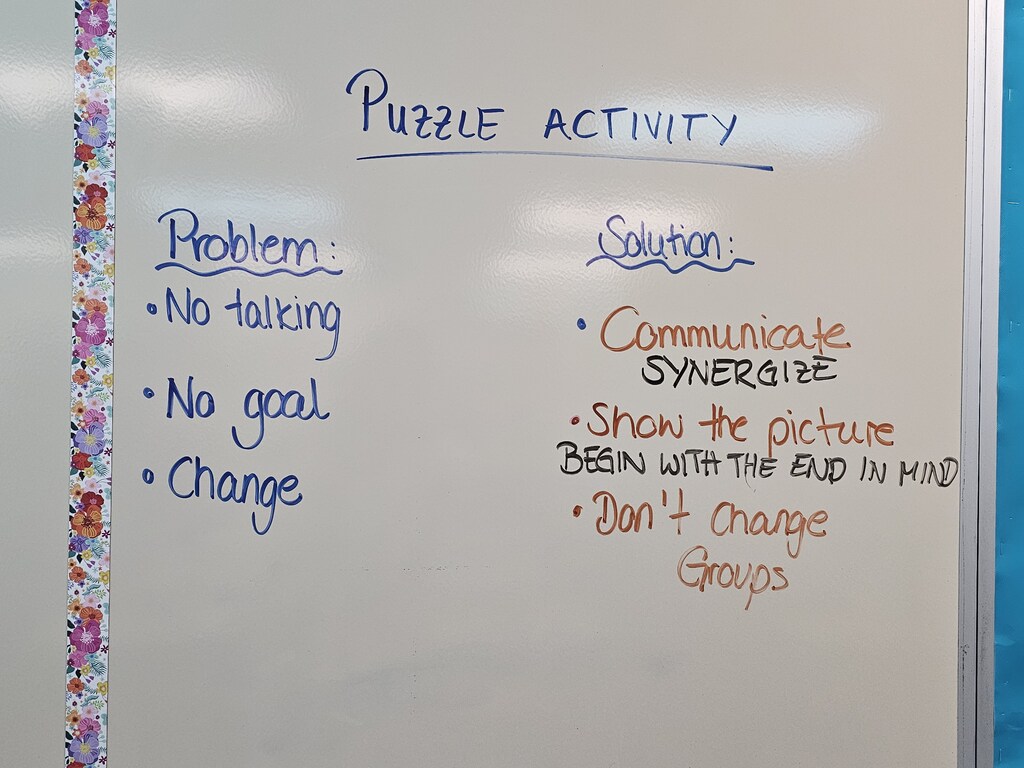 PUZZLE ACTIVITY
Problem:
• No talking
• No goal
• Change
Solution:
• Communicate
SYNERGIZE
• Show the picture
BEGIN WITH THE END IN MIND
• Don't change
Groups